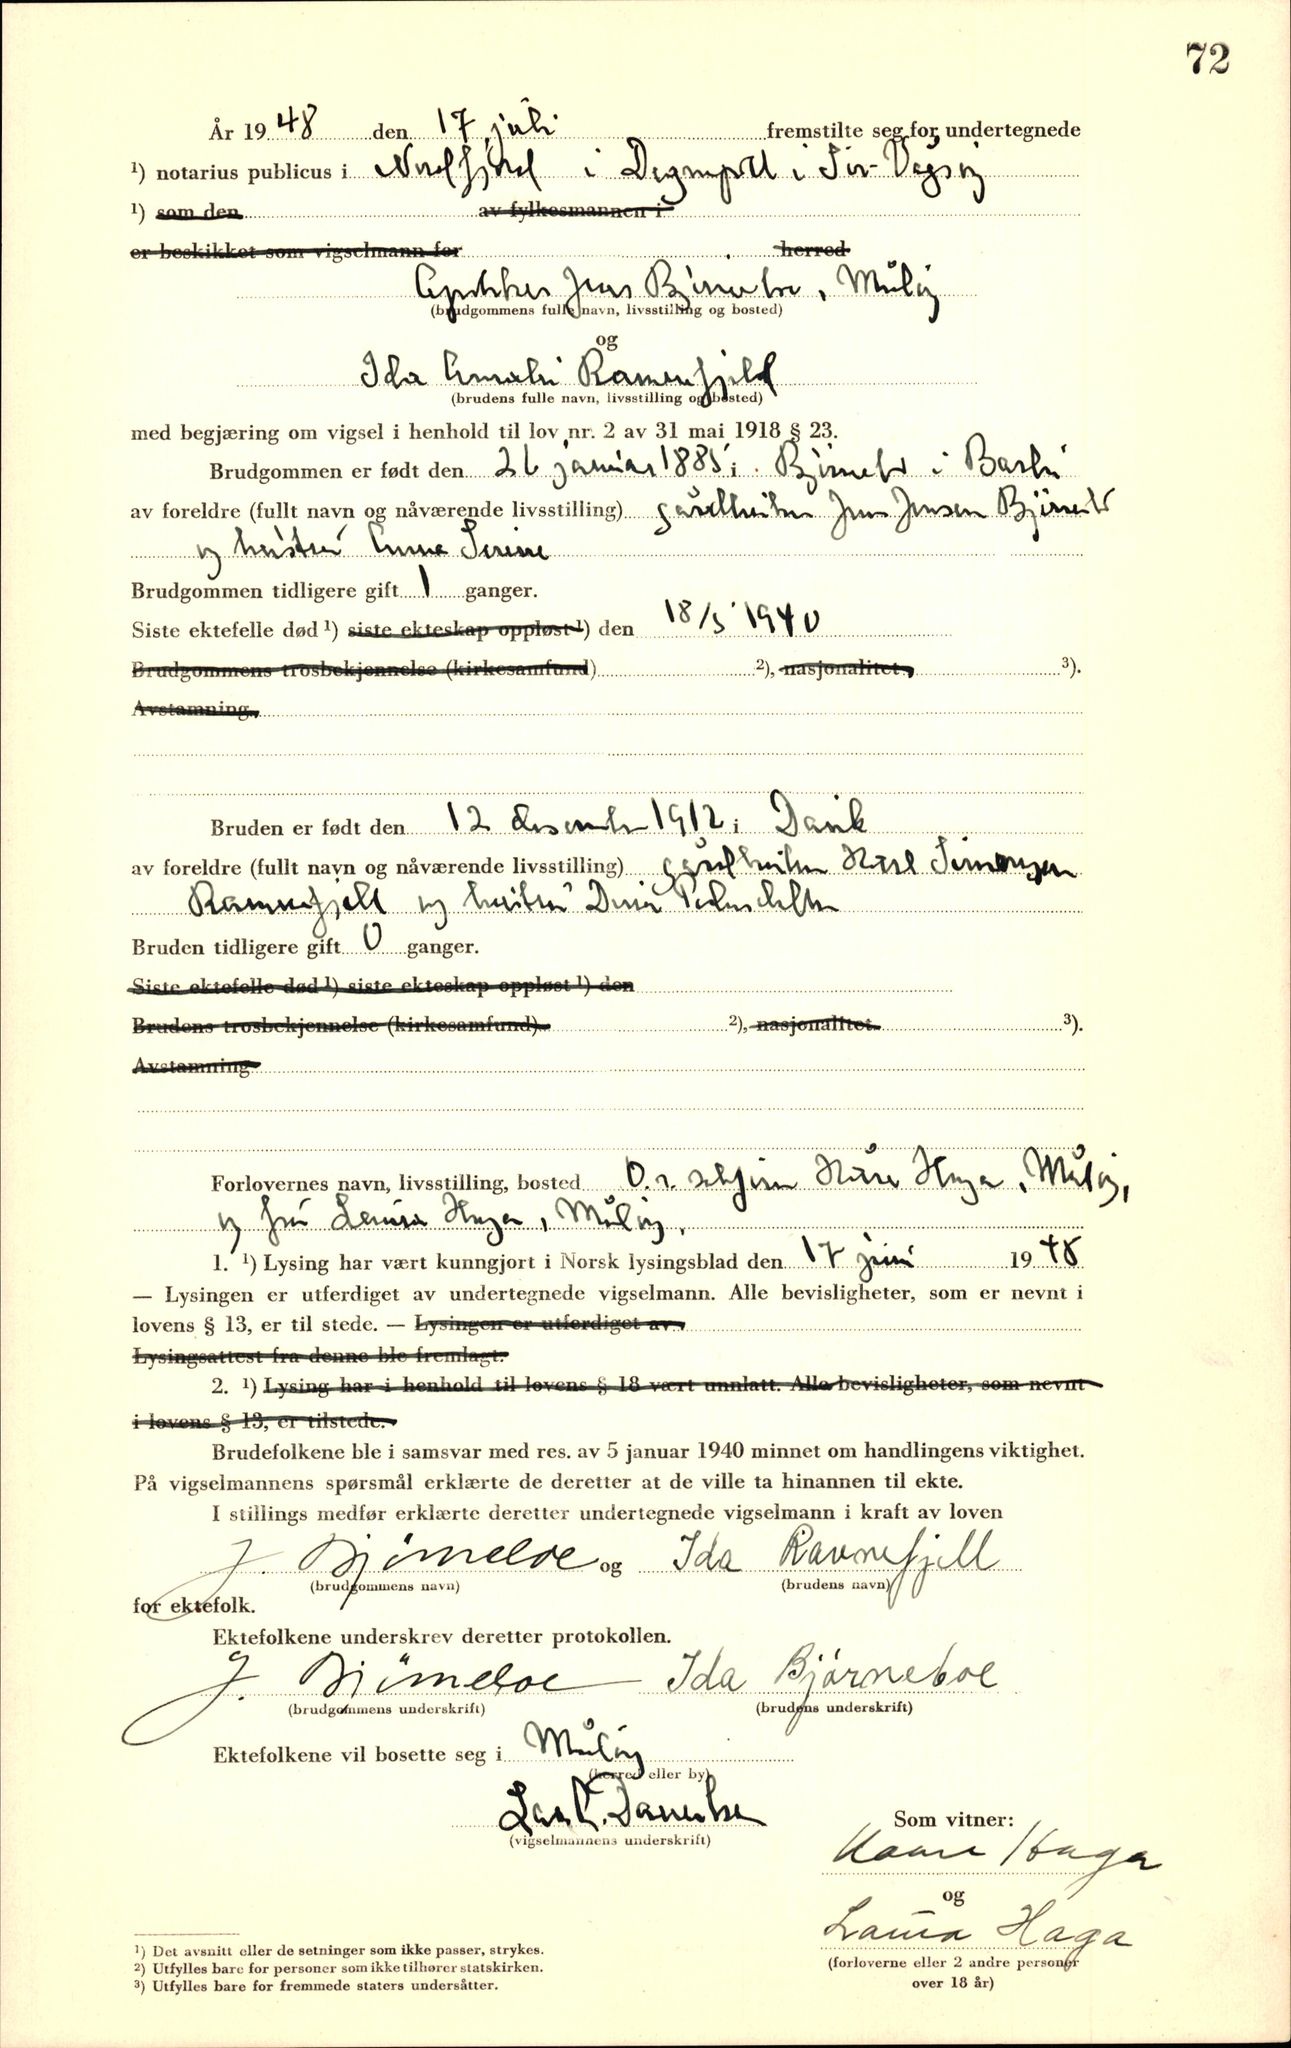 72
År 19 48 den 17 juli fremstilte seg for undertegnede
¹) notarius publicus i Nordfjord i i Sør-Vågsøy
¹) som den av fylkesmannen i
er beskikket som vigselmann for herred
Apoteker Jens Bjørneboe, Måløy
(brudgommens fulle navn, livsstilling og bosted)
og
Ida Amalie Ramnefjeld
(brudens fulle navn, livsstilling og bosted)
med begjæring om vigsel i henhold til lov nr. 2 av 31 mai 1918 § 23.
Brudgommen er født den 26 januar 1885 i Bjørnebo i
av foreldre (fullt navn og nåværende livsstilling) gårdbruker Jens Jensen Bjørnebo
og hustru Anne Serine
Brudgommen tidligere gift 1 ganger.
Siste ektefelle død ¹) siste ekteskap oppløst ¹) den 18/5 1940
Brudgommens trosbekjennelse (kirkesamfund) ²), nasjonalitet ³).
Avstamning
Bruden er født den 12 desember 1912 i Davik
av foreldre (fullt navn og nåværende livsstilling) gårdbruker Simonsen
Ramnefjell og hustru Pedersdatter
Bruden tidligere gift 0 ganger.
Siste ektefelle død ¹) siste ekteskap oppløst ¹) den
Brudens trosbekjennelse (kirkesamfund) ²), nasjonalitet ³).
Avstamning
Forlovernes navn, livsstilling, bosted O.r. sakfører Kåre Haga, Måløy,
og fru Laura Haga, Måløy.
1. ¹) Lysing har vært kunngjort i Norsk lysingsblad den 17 juni 19 48
— Lysingen er utferdiget av undertegnede vigselmann. Alle bevisligheter, som er nevnt i
lovens § 13, er til stede. — Lysingen er utferdiget av
Lysingsattest fra denne ble fremlagt.
2. ¹) Lysing har i henhold til lovens § 18 vært unnlatt. Alle bevisligheter, som nevnt
i lovens § 13, er tilstede.
Brudefolkene ble i samsvar med res. av 5 januar 1940 minnet om handlingens viktighet.
På vigselmannens spørsmål erklærte de deretter at de ville ta hinannen til ekte.
I stillings medfør erklærte deretter undertegnede vigselmann i kraft av loven
J. Bjørneboe og Ida Ravnefjell
(brudgommens navn) (brudens navn)
for ektefolk.
Ektefolkene underskrev deretter protokollen.
J. Bjørneboe Ida Bjørneboe
(brudgommens underskrift) (brudens underskrift)
Ektefolkene vil bosette seg i Måløy
(herred eller by)
(vigselmannens underskrift)
Som vitner:
Kaare Haga
og
Laura Haga
(forloverne eller 2 andre personer
over 18 år)
¹) Det avsnitt eller de setninger som ikke passer, strykes.
²) Utfylles bare for personer som ikke tilhører statskirken.
³) Utfylles bare for fremmede staters undersåtter.